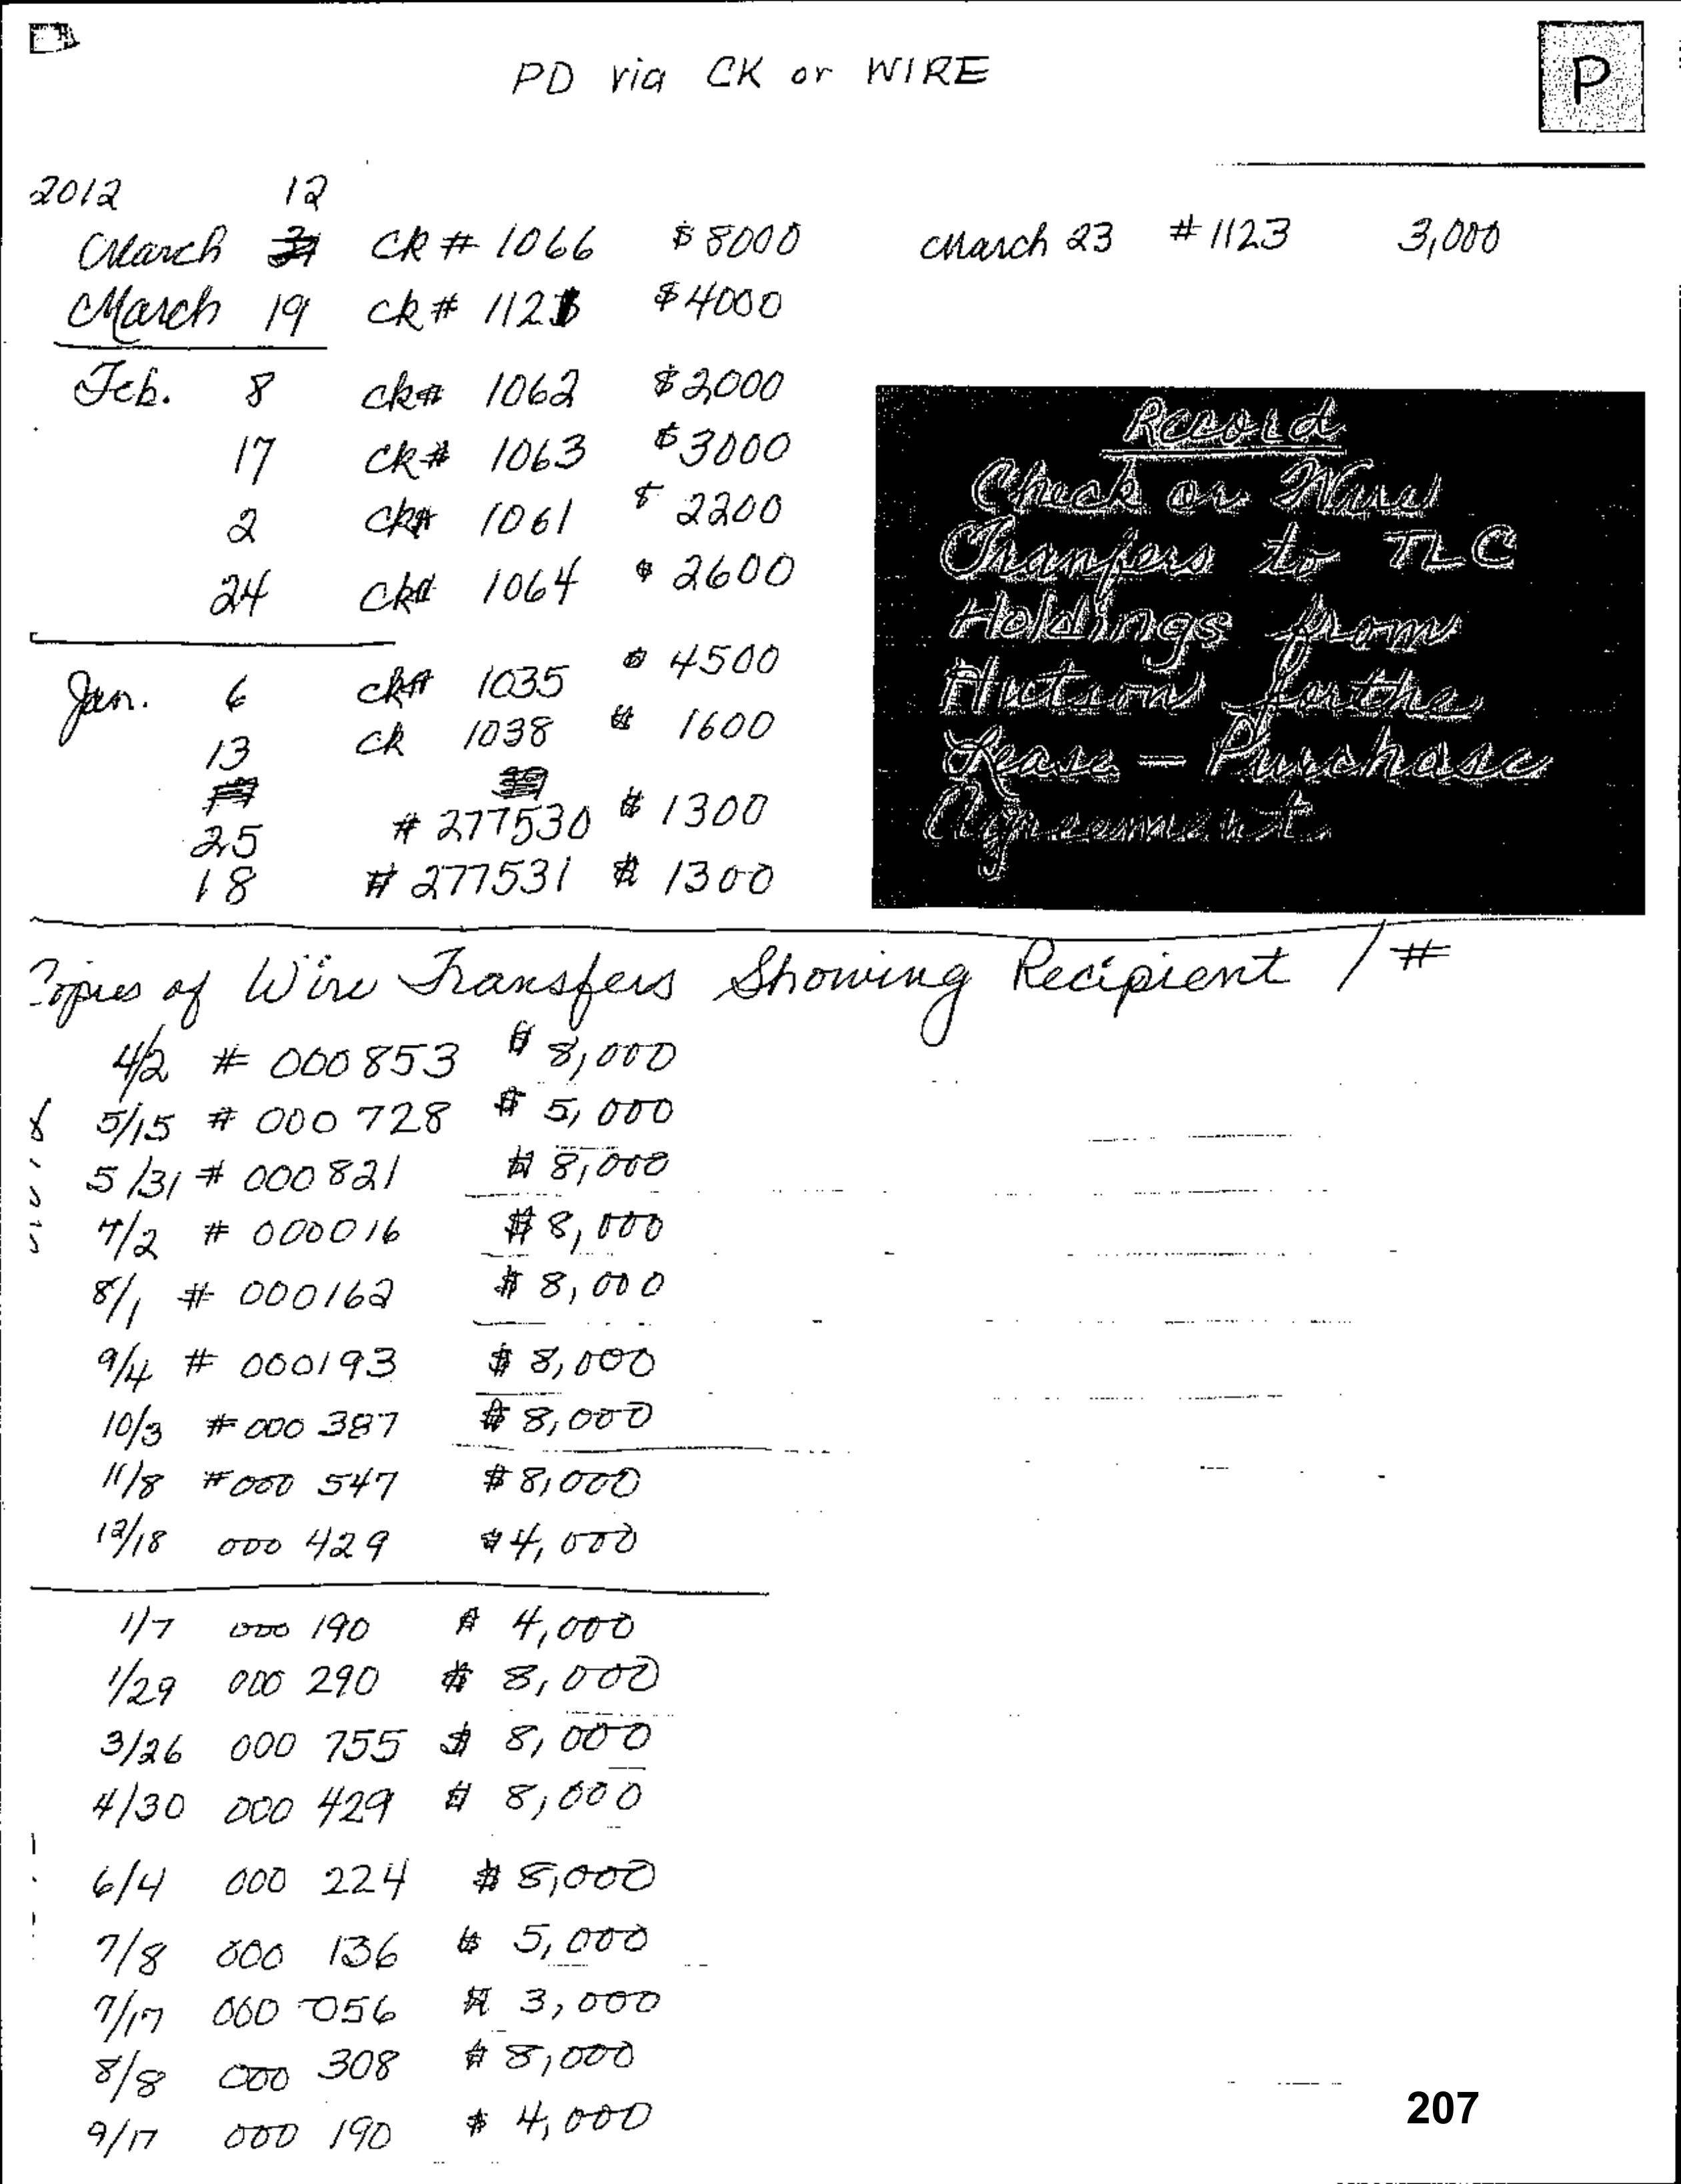 PD via CK or WIRE
P
2012 12
March CK # 1066 $8000 March 23 #1123 3,000
March 19 ck # 112 $4000
Feb. 8 ck# 1062 $2000
17 ck# 1063 $3000
2 ck# 1061 $2200
24 ck# 1064 $2600
Jan. 6 ck# 1035 $4500
13 ck 1038 $1600
25 #277530 $1300
18 #277531 $1300
Record
Check or Wire
Tranfers to TLC
Holdings from
Hutson for the
Lease - Purchase
Agreement
Copies of Wire Transfers Showing Recipient / #
4/2 # 000853 $8,000
5/15 # 000728 $5,000
5/31 # 000821 $8,000
7/2 # 000016 $8,000
8/1 # 000162 $8,000
9/4 # 000193 $8,000
10/3 #000387 $8,000
11/8 #000 547 $8,000
12/18 000 429 $4,000
1/7 000 190 $4,000
1/29 000 290 $8,000
3/26 000 755 $8,000
4/30 000 429 $8,000
6/4 000 224 $8,000
7/8 000 136 $5,000
7/17 000 056 $3,000
8/8 000 308 $8,000
9/17 000 190 $4,000
207